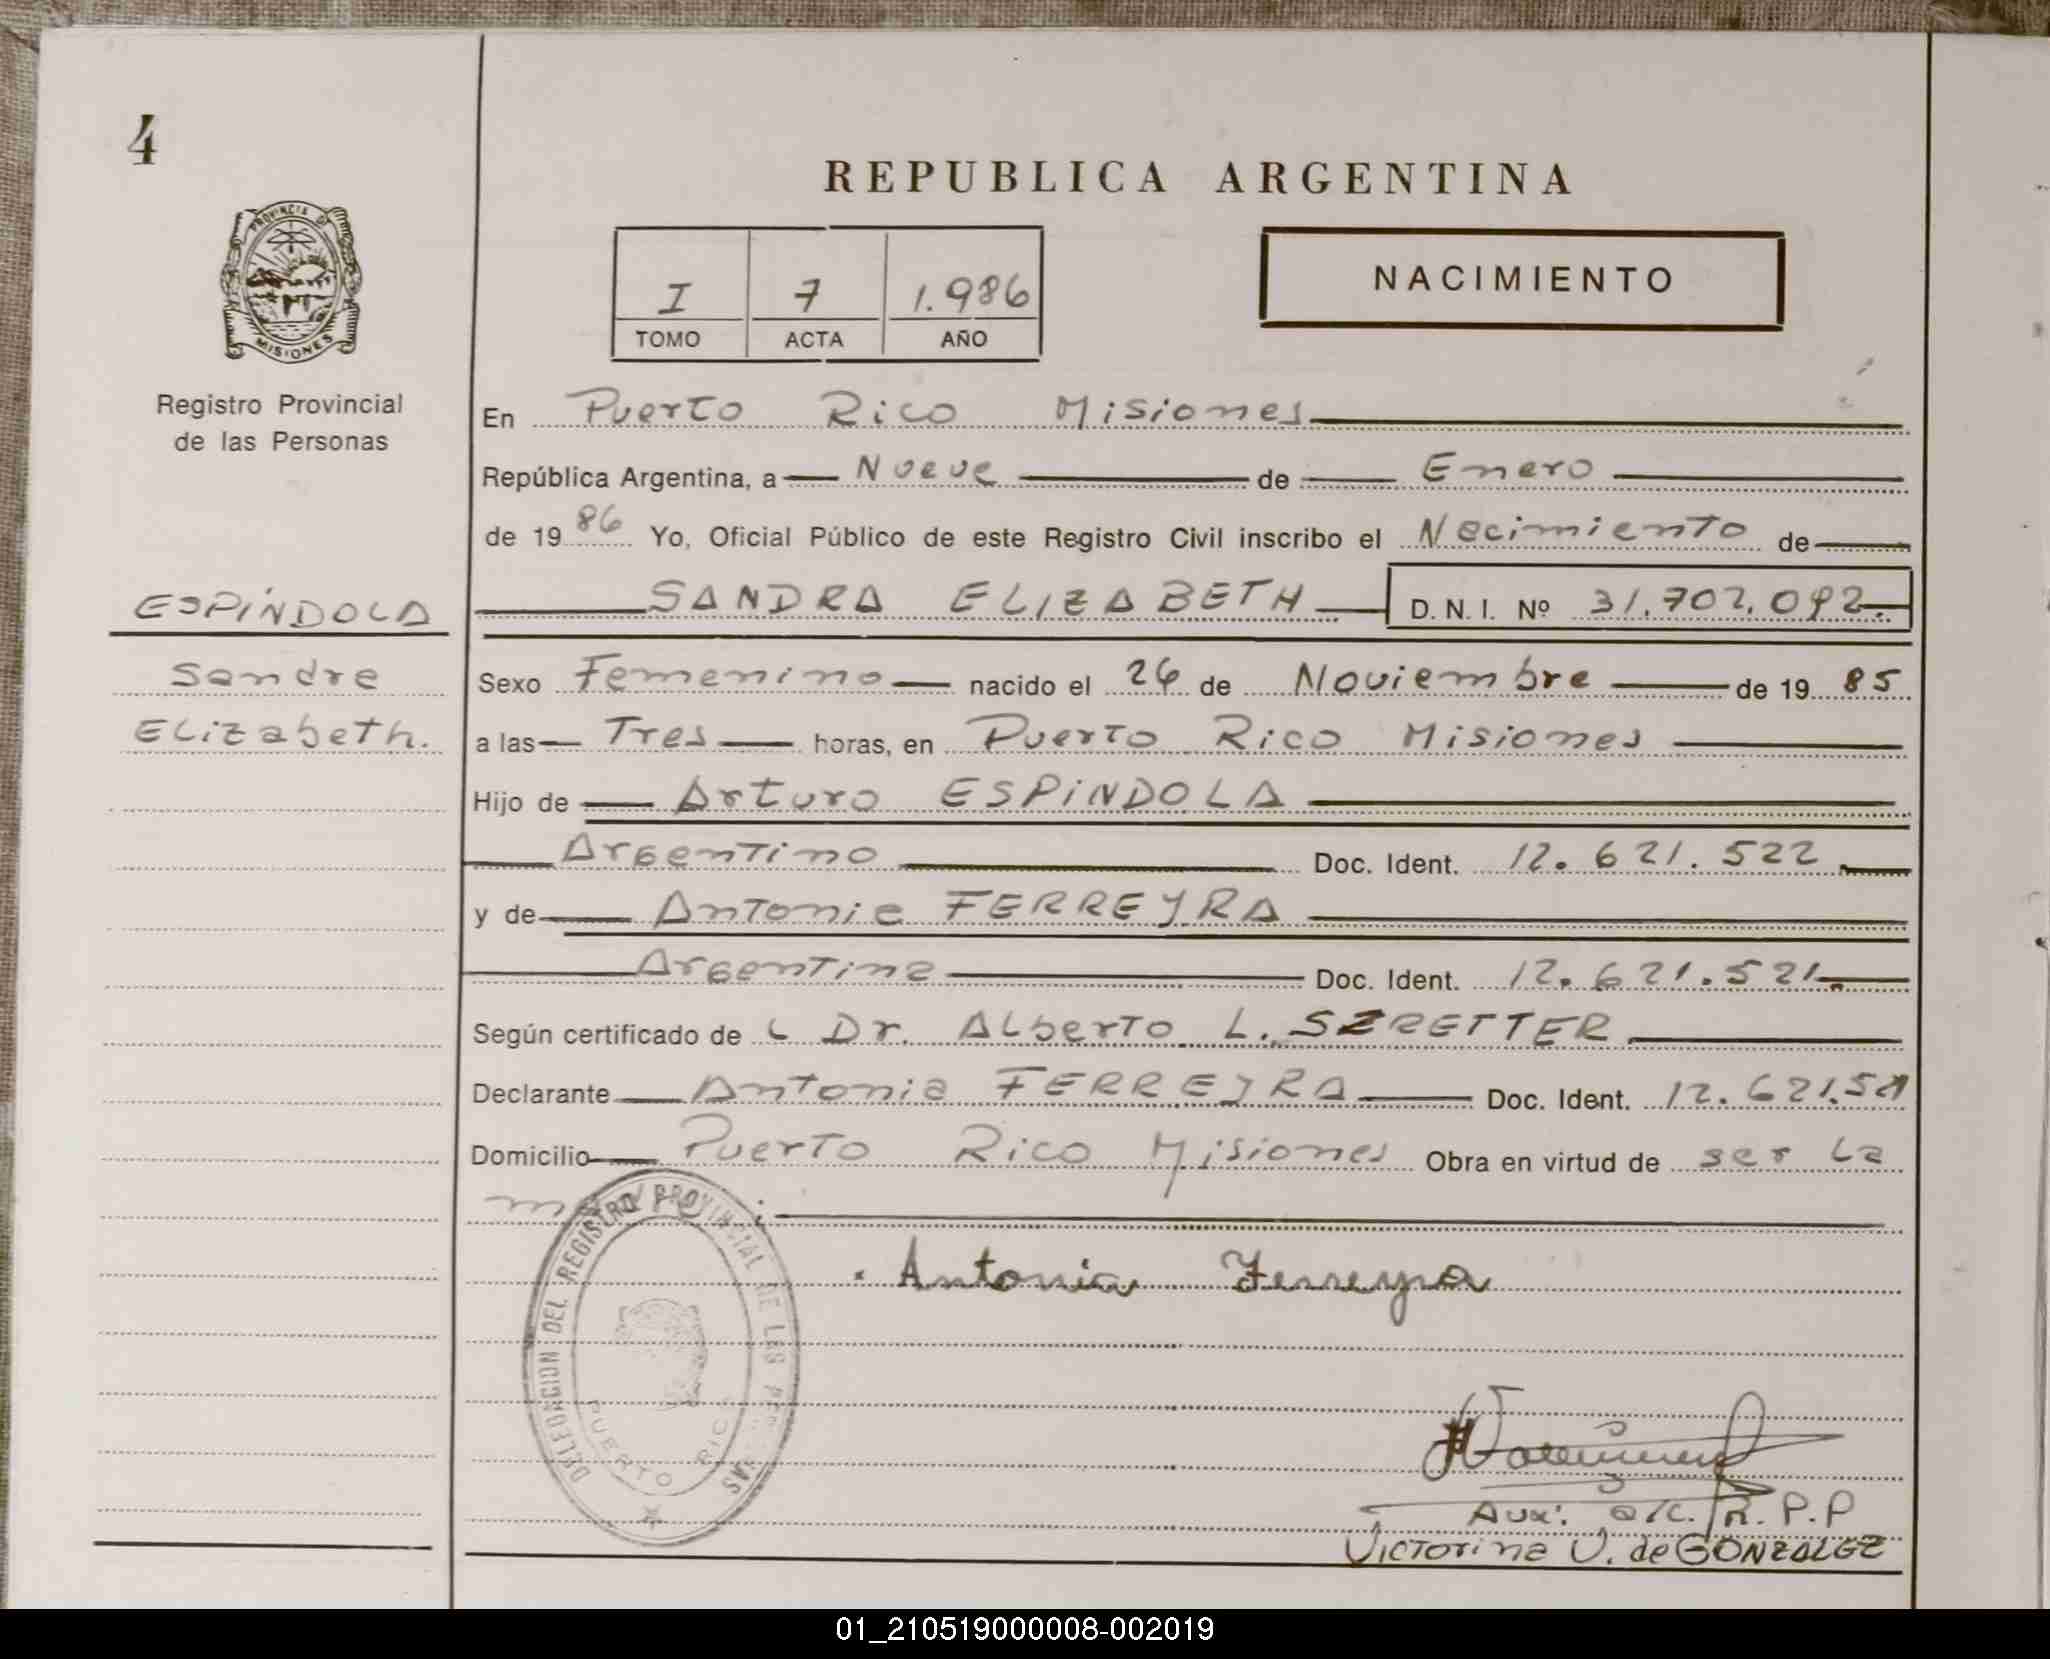 4
REPUBLICA ARGENTINA
PROVINCIA DE
MISIONES
I 7 1.986
TOMO ACTA AÑO
NACIMIENTO
Registro Provincial
de las Personas
En Puerto Rico Misiones
República Argentina, a Nueve de Enero
de 19 86 Yo, Oficial Público de este Registro Civil inscribo el Nacimiento de
ESPÍNDOLA
SANDRA ELIZABETH D. N. I. Nº 31.702.092.
Sandra
Elizabeth.
Sexo Femenino nacido el 26 de Noviembre de 19 85
a las Tres horas, en Puerto Rico Misiones
Hijo de Arturo ESPiNDOLA
Argentino Doc. Ident. 12.621.522
y de Antonia FERREYRA
Argentina Doc. Ident. 12.621.521.
Según certificado de L Dr. Alberto L. SZRETTER
Declarante Antonia FERREYRA Doc. Ident. 12.621.521
Domicilio Puerto Rico Misiones Obra en virtud de ser la
DELEGACION DEL REGISTRO PROVINCIAL DE LAS
PUERTO RICO
Antonia Ferreyra
Aux: a/c. R.P.P
Victorina V. de GONZALEZ
01_210519000008-002019